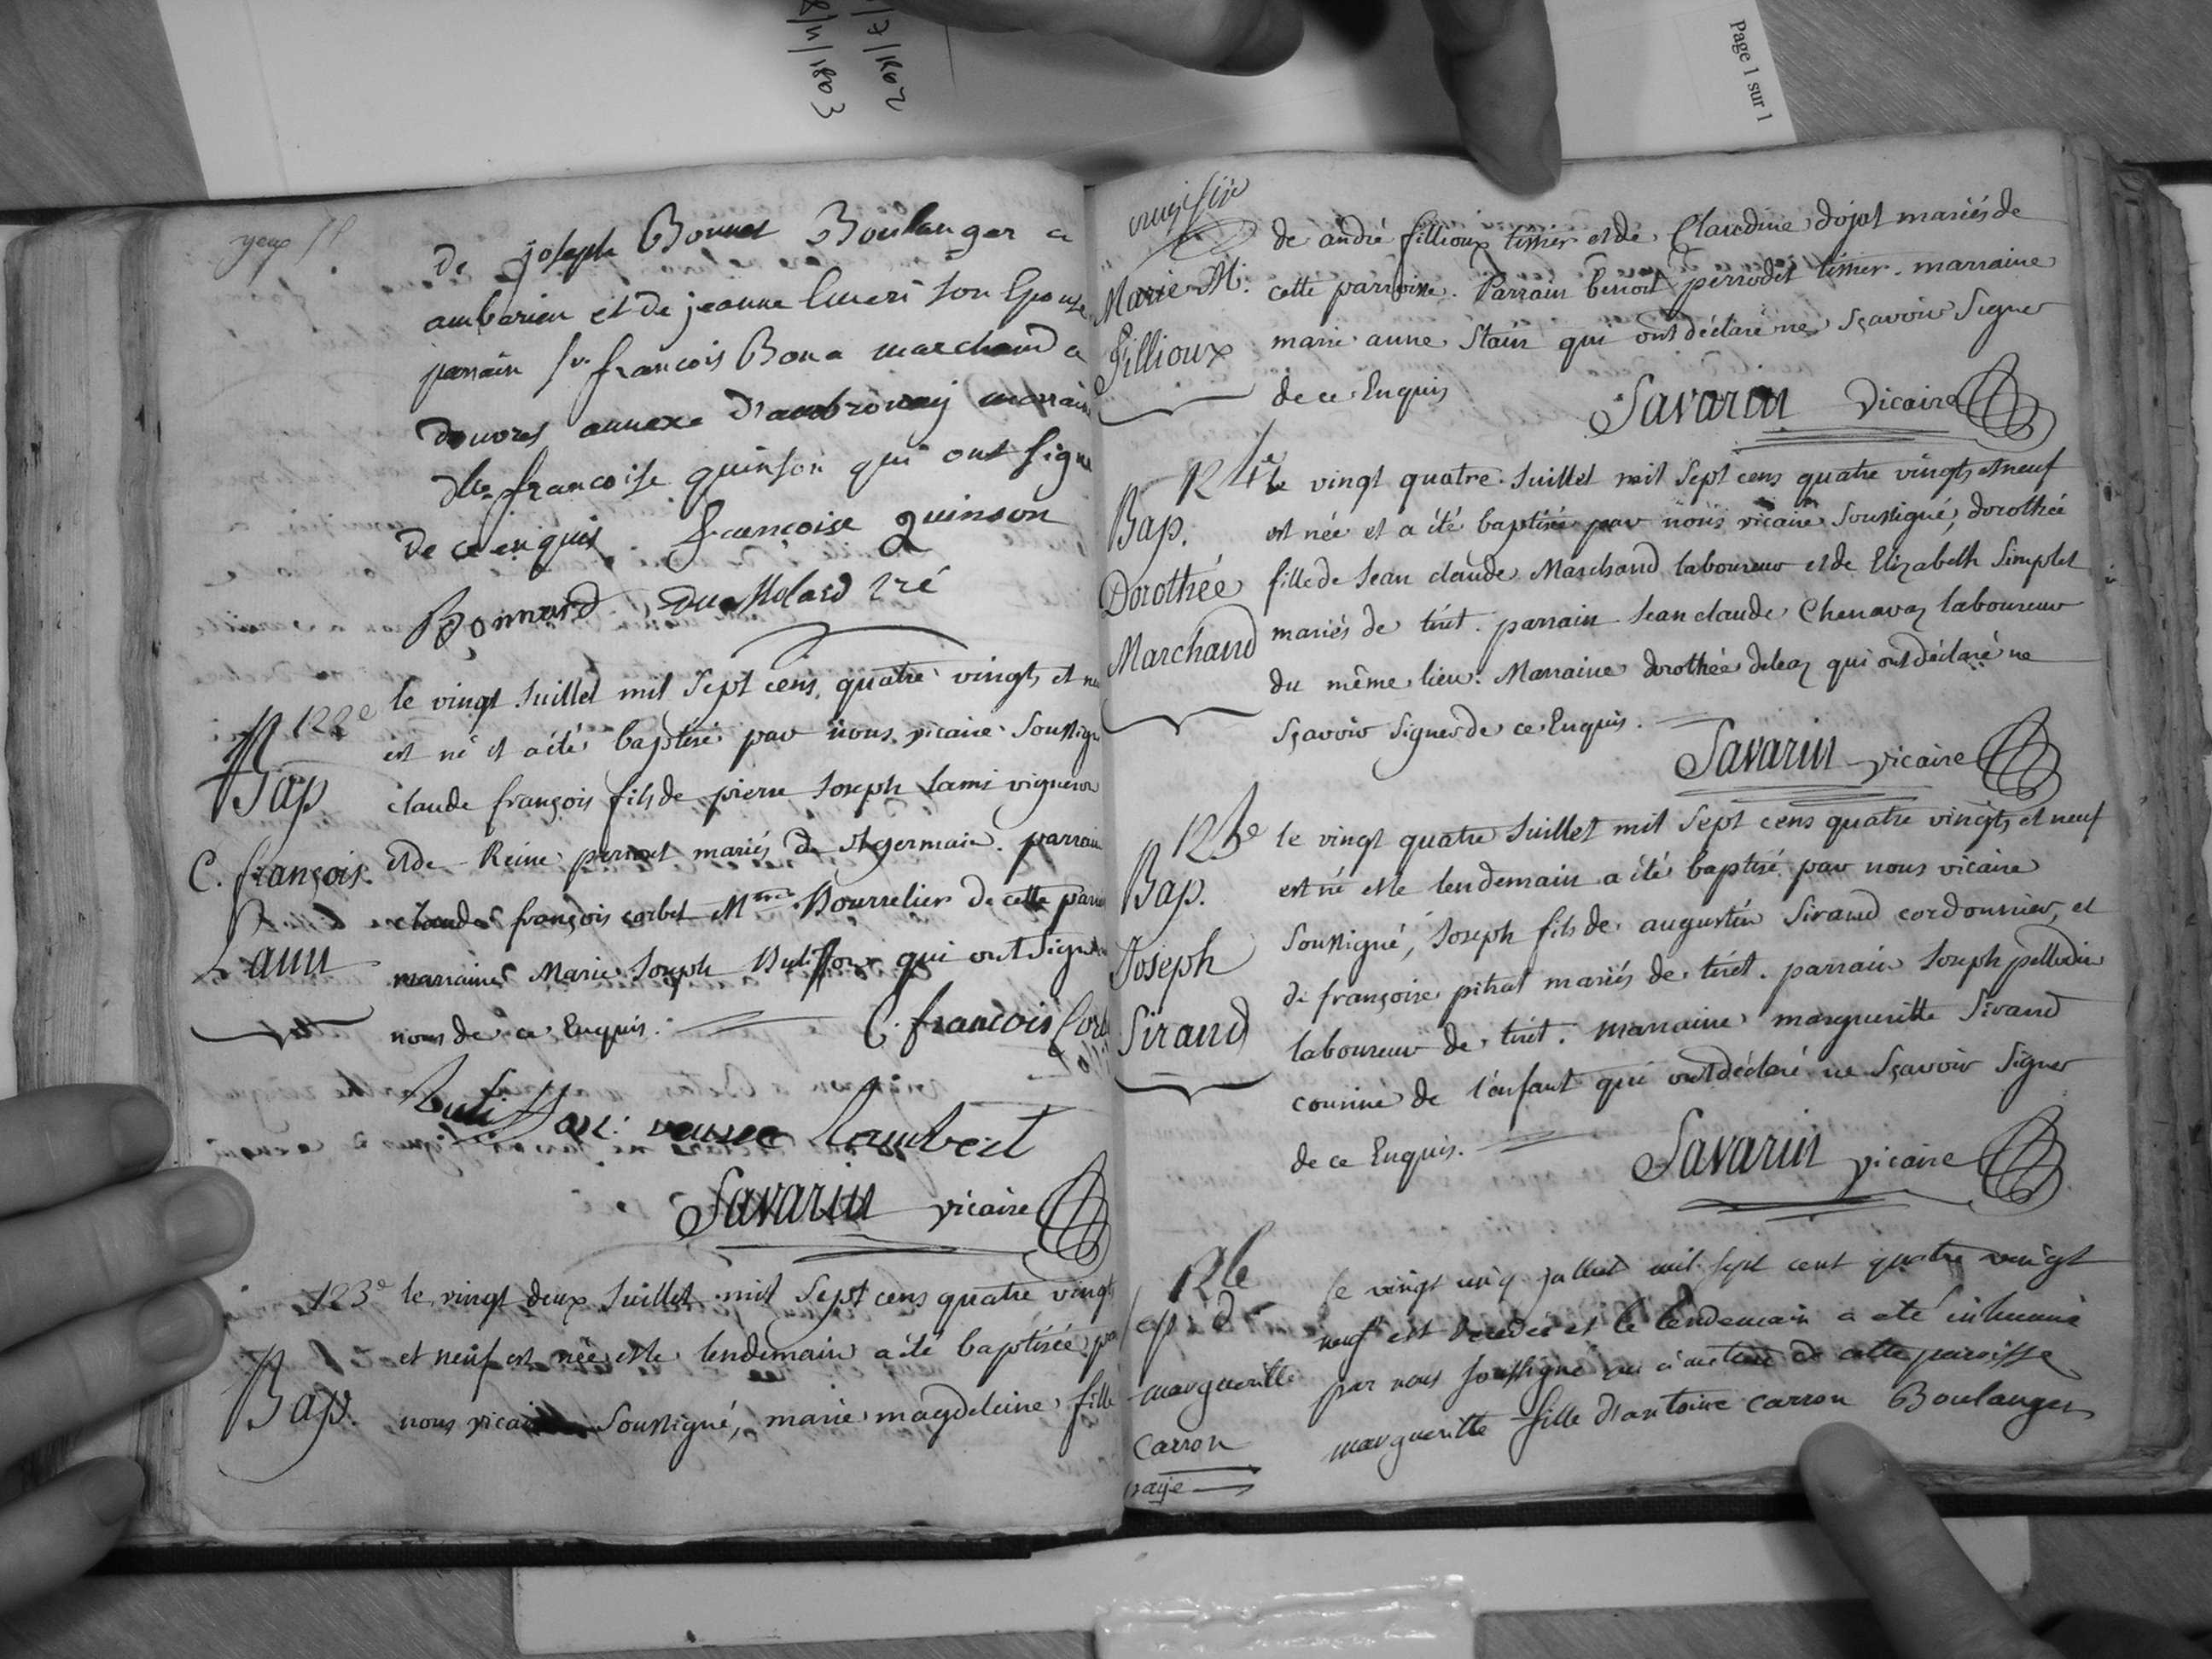 8/4/1803
/7/1802
Page 1 sur 1
de joseph Bonnet Boulanger a
ambarieu et de jeanne Emeri son Epouse
parrain sr françois Bona marchand a
douvres annexe d'ambronay marraine
dlle francoise quinson qui ont signé
de ce enquis. françoise Quinson
Bonnard Dumollard
122e
Bap
C. françois
Lami
le vingt Juillet mil sept cens quatre vingts et neuf
est né et a été baptisé par nous vicaire soussigné
claude françois fils de pierre Joseph Lami vigneron
et de Reine perrout mariés de st germain. parrain
claude françois corbet Mtre Bourrelier de cette parroisse
marraine Marie Joseph qui ont signé
nous de ce Enquis. C. françois Corbet
veuve Lambert
Savarin vicaire
123e
Bap.
le vingt deux Juillet mil sept cens quatre vingts
et neuf est née et le lendemain a été baptisée par
nous vicaire soussigné, marie magdeleine fille
vingt six
Marie M.
Fillioux
de andré fillioux tissier et de Claudine dojat mariés de
cette parroisse. Parrain benoit perrodet tissier. marraine
marie anne Stain qui ont déclaré ne sçavoir signer
de ce Enquis Savarin Vicaire
124e
Bap.
Dorothée
Marchand
le vingt quatre Juillet mil sept cens quatre vingts et neuf
est née et a été baptisée par nous vicaire soussigné, dorothée
fille de Jean claude Marchand laboureur et de Elizabeth Simplet
mariés de tiret. parrain Jean claude Chenavaz laboureur
du même lieu. Marraine dorothée deleaz qui ont déclaré ne
sçavoir signer de ce Enquis.
Savarin vicaire
125e
Bap.
Joseph
Sirand
le vingt quatre Juillet mil sept cens quatre vingts et neuf
est né et le lendemain a été baptisé par nous vicaire
soussigné, Joseph fils de augustin Sirand cordonnier, et
de françoise pitrat mariés de tiret. parrain Joseph pellodin
laboureur de tiret. marraine margueritte Sirand
cousine de l'enfant qui ont déclaré ne sçavoir signer
de ce Enquis. Savarin vicaire
126
margueritte
Carron
le vingt cinq juillet mil sept cent quatre vingt
neuf est decedee et le lendemain a eté inhumé
par nous soussigné au cimetiere de cette paroisse
margueritte fille d'antoine carron Boulanger